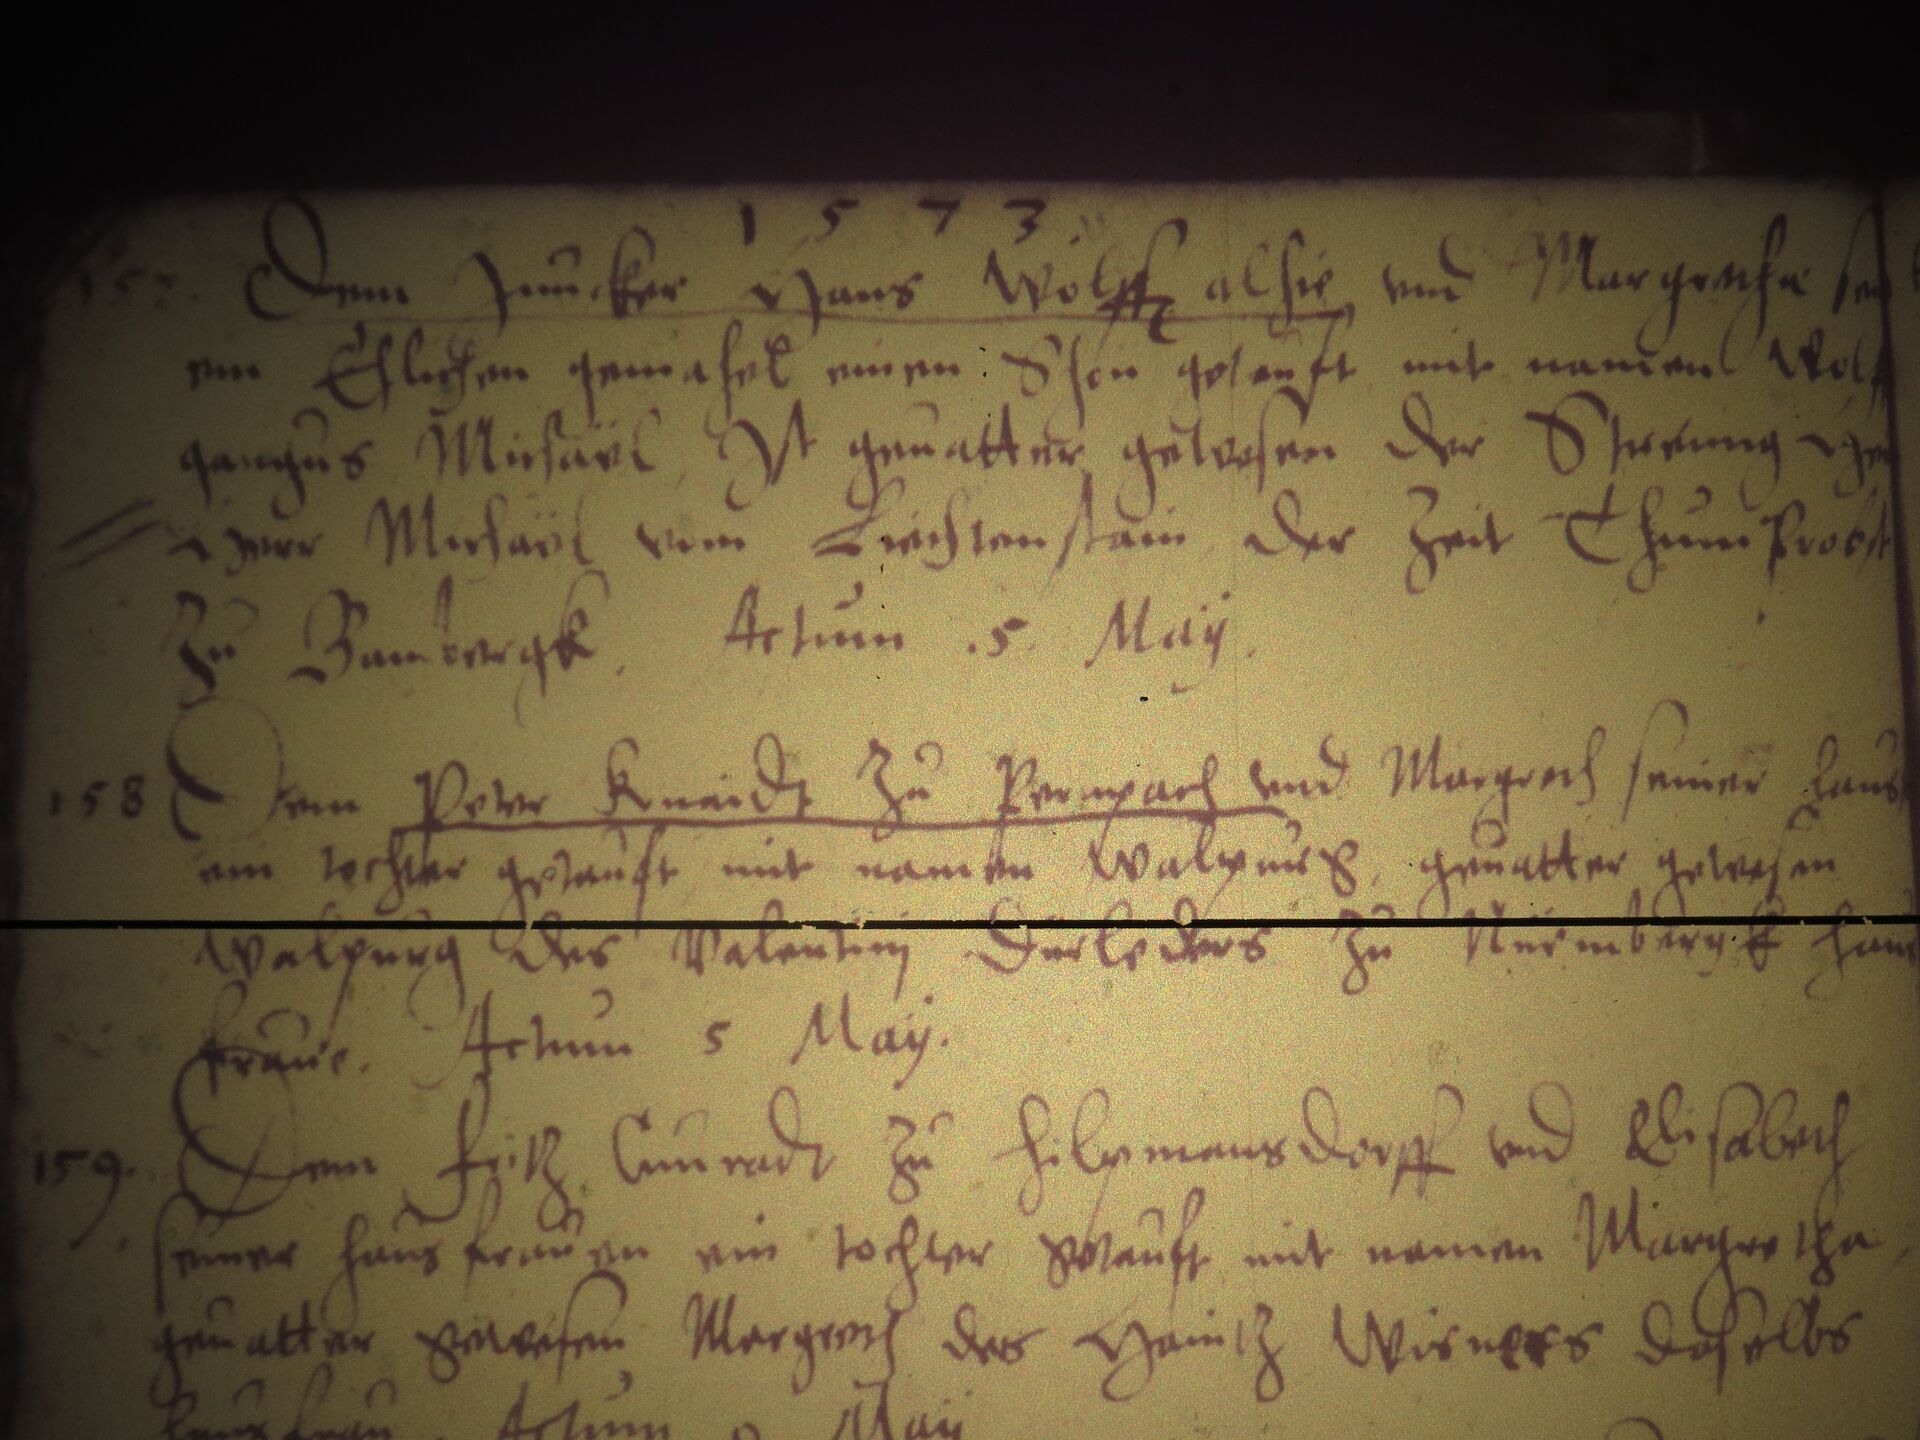 1573
157. Dem Juncker Hans Wolff alhie, vnd Margretha sei
nem Ehlichen gemahel einen Shon getaufft mit namen Wolff
gangus Michaël, Ist geuatter gewesen der Ehrwirdig
Herr Michaël vom Liechtenstain der Zeit ThumProbst
Zu Bambergk. Actum .5. Maij.
158 Dem Peter Kneidt Zu Permpach vnd Margreth seiner haus
ein tochter getaufft mit namen Walpurg, geuatter gewesen
Walpurg des Valentin Derleders zu Nürmbergk haus
fraue. Actum 5 Maij.
159. Dem Fritz Cunradt Zu Hilpmansdorff vnd Elisabeth
seiner hausfrauen ein tochter getaufft mit namen Margretha,
geuatter gewesen Margreth des Haintz Wisners doselbs
hausfrau. Actum Maij